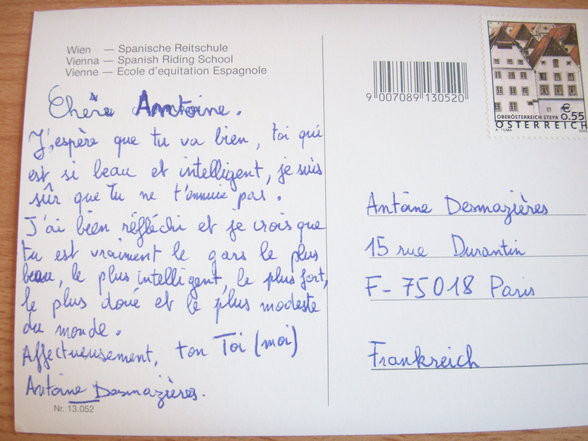 Wien — Spanische Reitschule
Vienna — Spanish Riding School
Vienne — Ecole d'equitation Espagnole
9 007089 130520
€ 0.55
OBERÖSTERREICH STEYR
ÖSTERREICH
Chère Antoine.
J'espère que tu va bien, toi qui
est si beau et intelligent, je suis
sûr que tu ne t'ennuie pas.
J'ai bien réfléchi et je crois que
tu est vraiment le gars le plus
beau, le plus intelligent, le plus fort,
le plus doué et le plus modeste
du monde.
Affectueusement, ton Toi (moi)
Antoine Desmazières.
Nr. 13.052
Antoine Desmazières
15 rue Durantin
F-75018 Paris
Frankreich